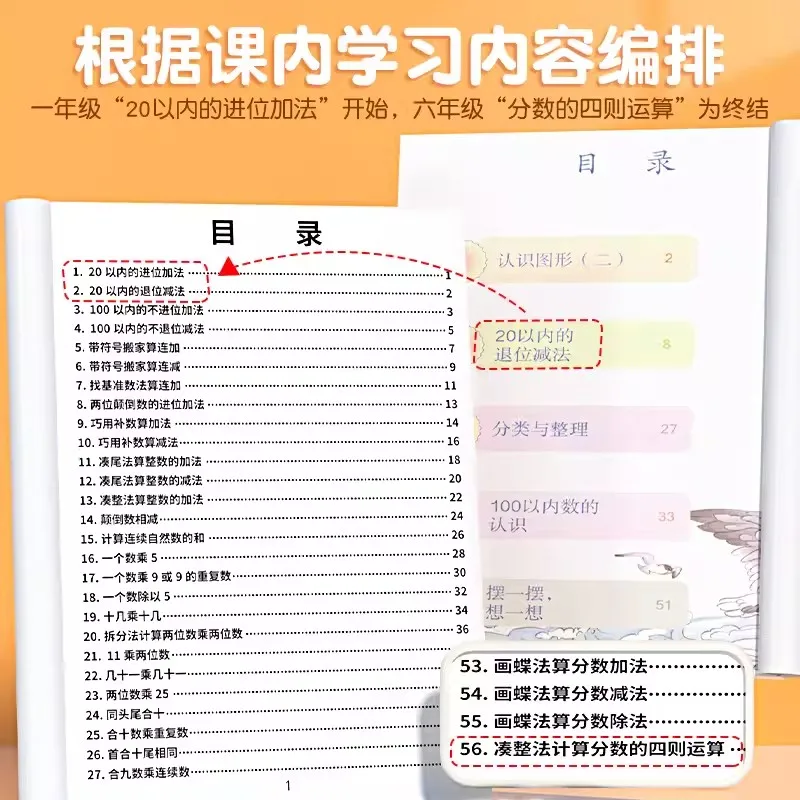 根据课内学习内容编排
一年级“20以内的进位加法”开始，六年级“分数的四则运算”为终结
目 录
1. 20 以内的进位加法 1
2. 20 以内的退位减法 2
3. 100 以内的不进位加法 3
4. 100 以内的不退位减法 5
5. 带符号搬家算连加 7
6. 带符号搬家算连减 9
7. 找基准数法算连加 11
8. 两位颠倒数的进位加法 13
9. 巧用补数算加法 14
10. 巧用补数算减法 16
11. 凑尾法算整数的加法 18
12. 凑尾法算整数的减法 20
13. 凑整法算整数的加法 22
14. 颠倒数相减 24
15. 计算连续自然数的和 26
16. 一个数乘 5 28
17. 一个数乘 9 或 9 的重复数 30
18. 一个数除以 5 32
19. 十几乘十几 34
20. 拆分法计算两位数乘两位数 36
21. 11 乘两位数
22. 几十一乘几十一
23. 两位数乘 25
24. 同头尾合十
25. 合十数乘重复数
26. 首合十尾相同
27. 合九数乘连续数
1
目 录
认识图形（二） 2
20以内的
退位减法 8
分类与整理 27
100以内数的
认识 33
摆一摆，
想一想 51
53. 画蝶法算分数加法
54. 画蝶法算分数减法
55. 画蝶法算分数除法
56. 凑整法计算分数的四则运算